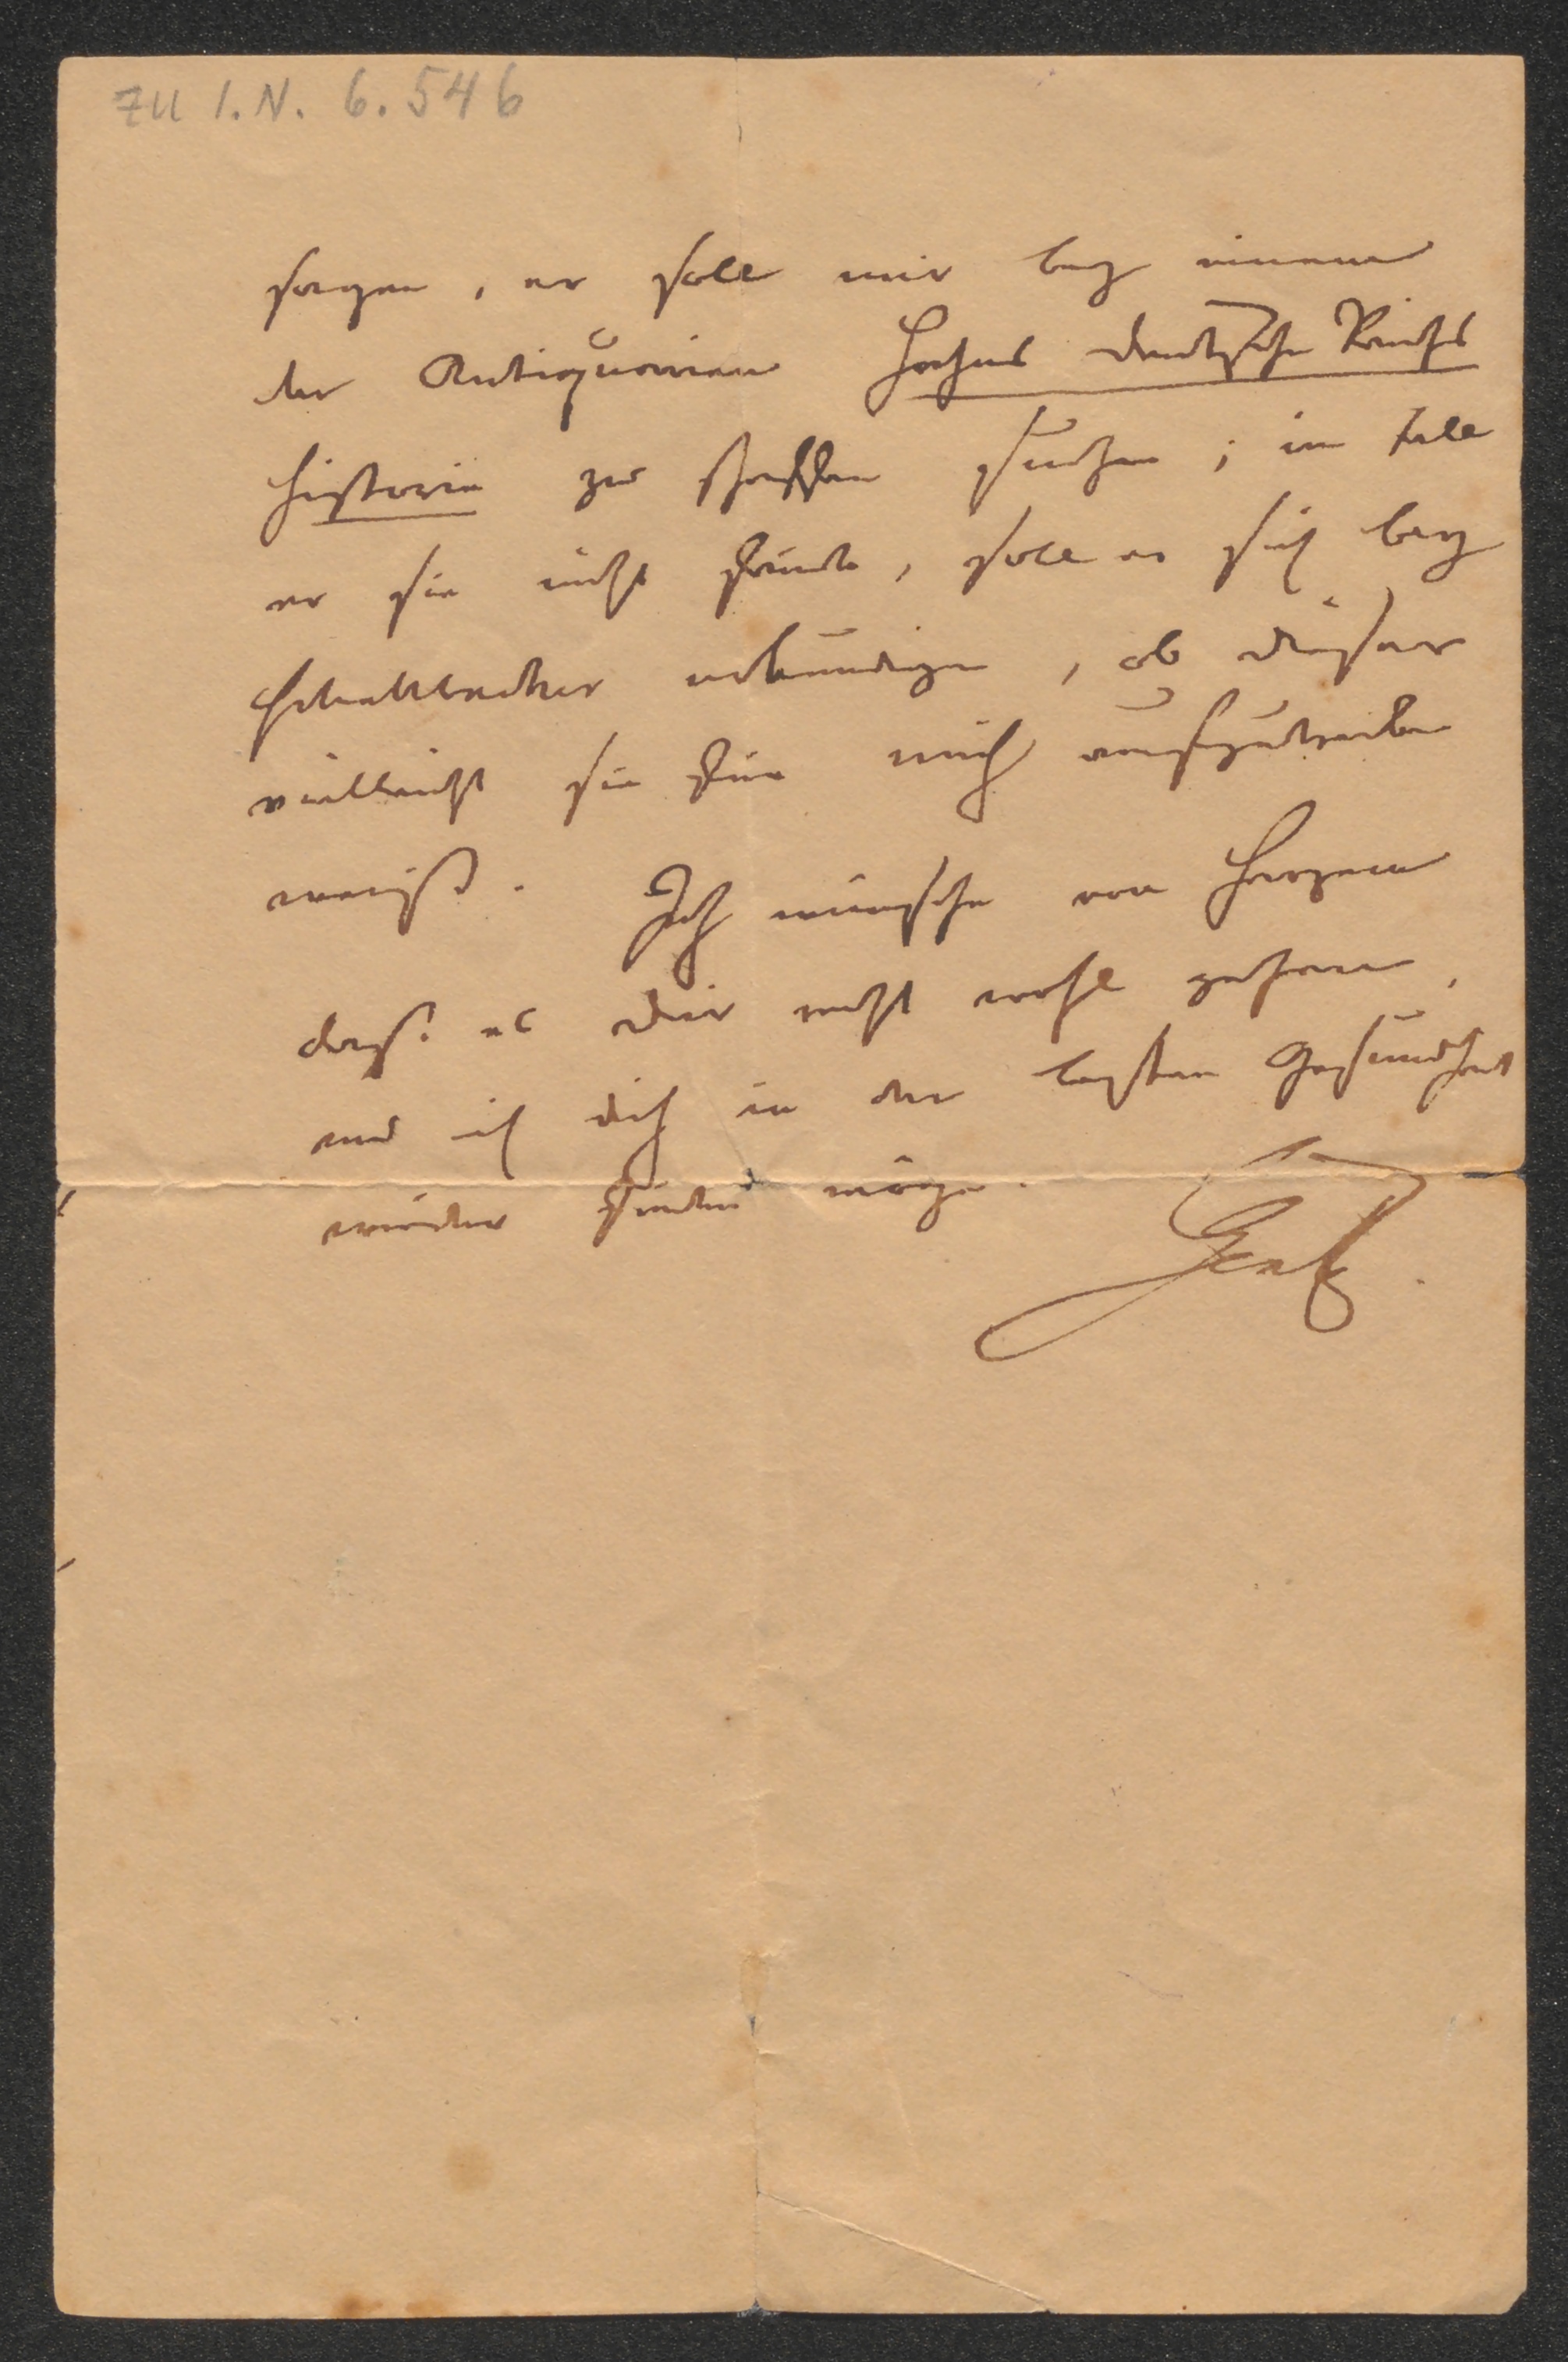 zu I.N. 6.546
sagen, er solle mir bey einem
der Antiquarien Hahns deutsche Reichs
historie zu schaffen suchen; im Fall
er sie nicht finde, solle er sich bey
erkundigen, ob dieser
vielleicht sie für mich aufzutreiben
weiß. Ich wünsche von Herzen
daß es dir recht wohl gehen,
und ich dich in der besten Gesundheit
wieder finden möge.
Gentz